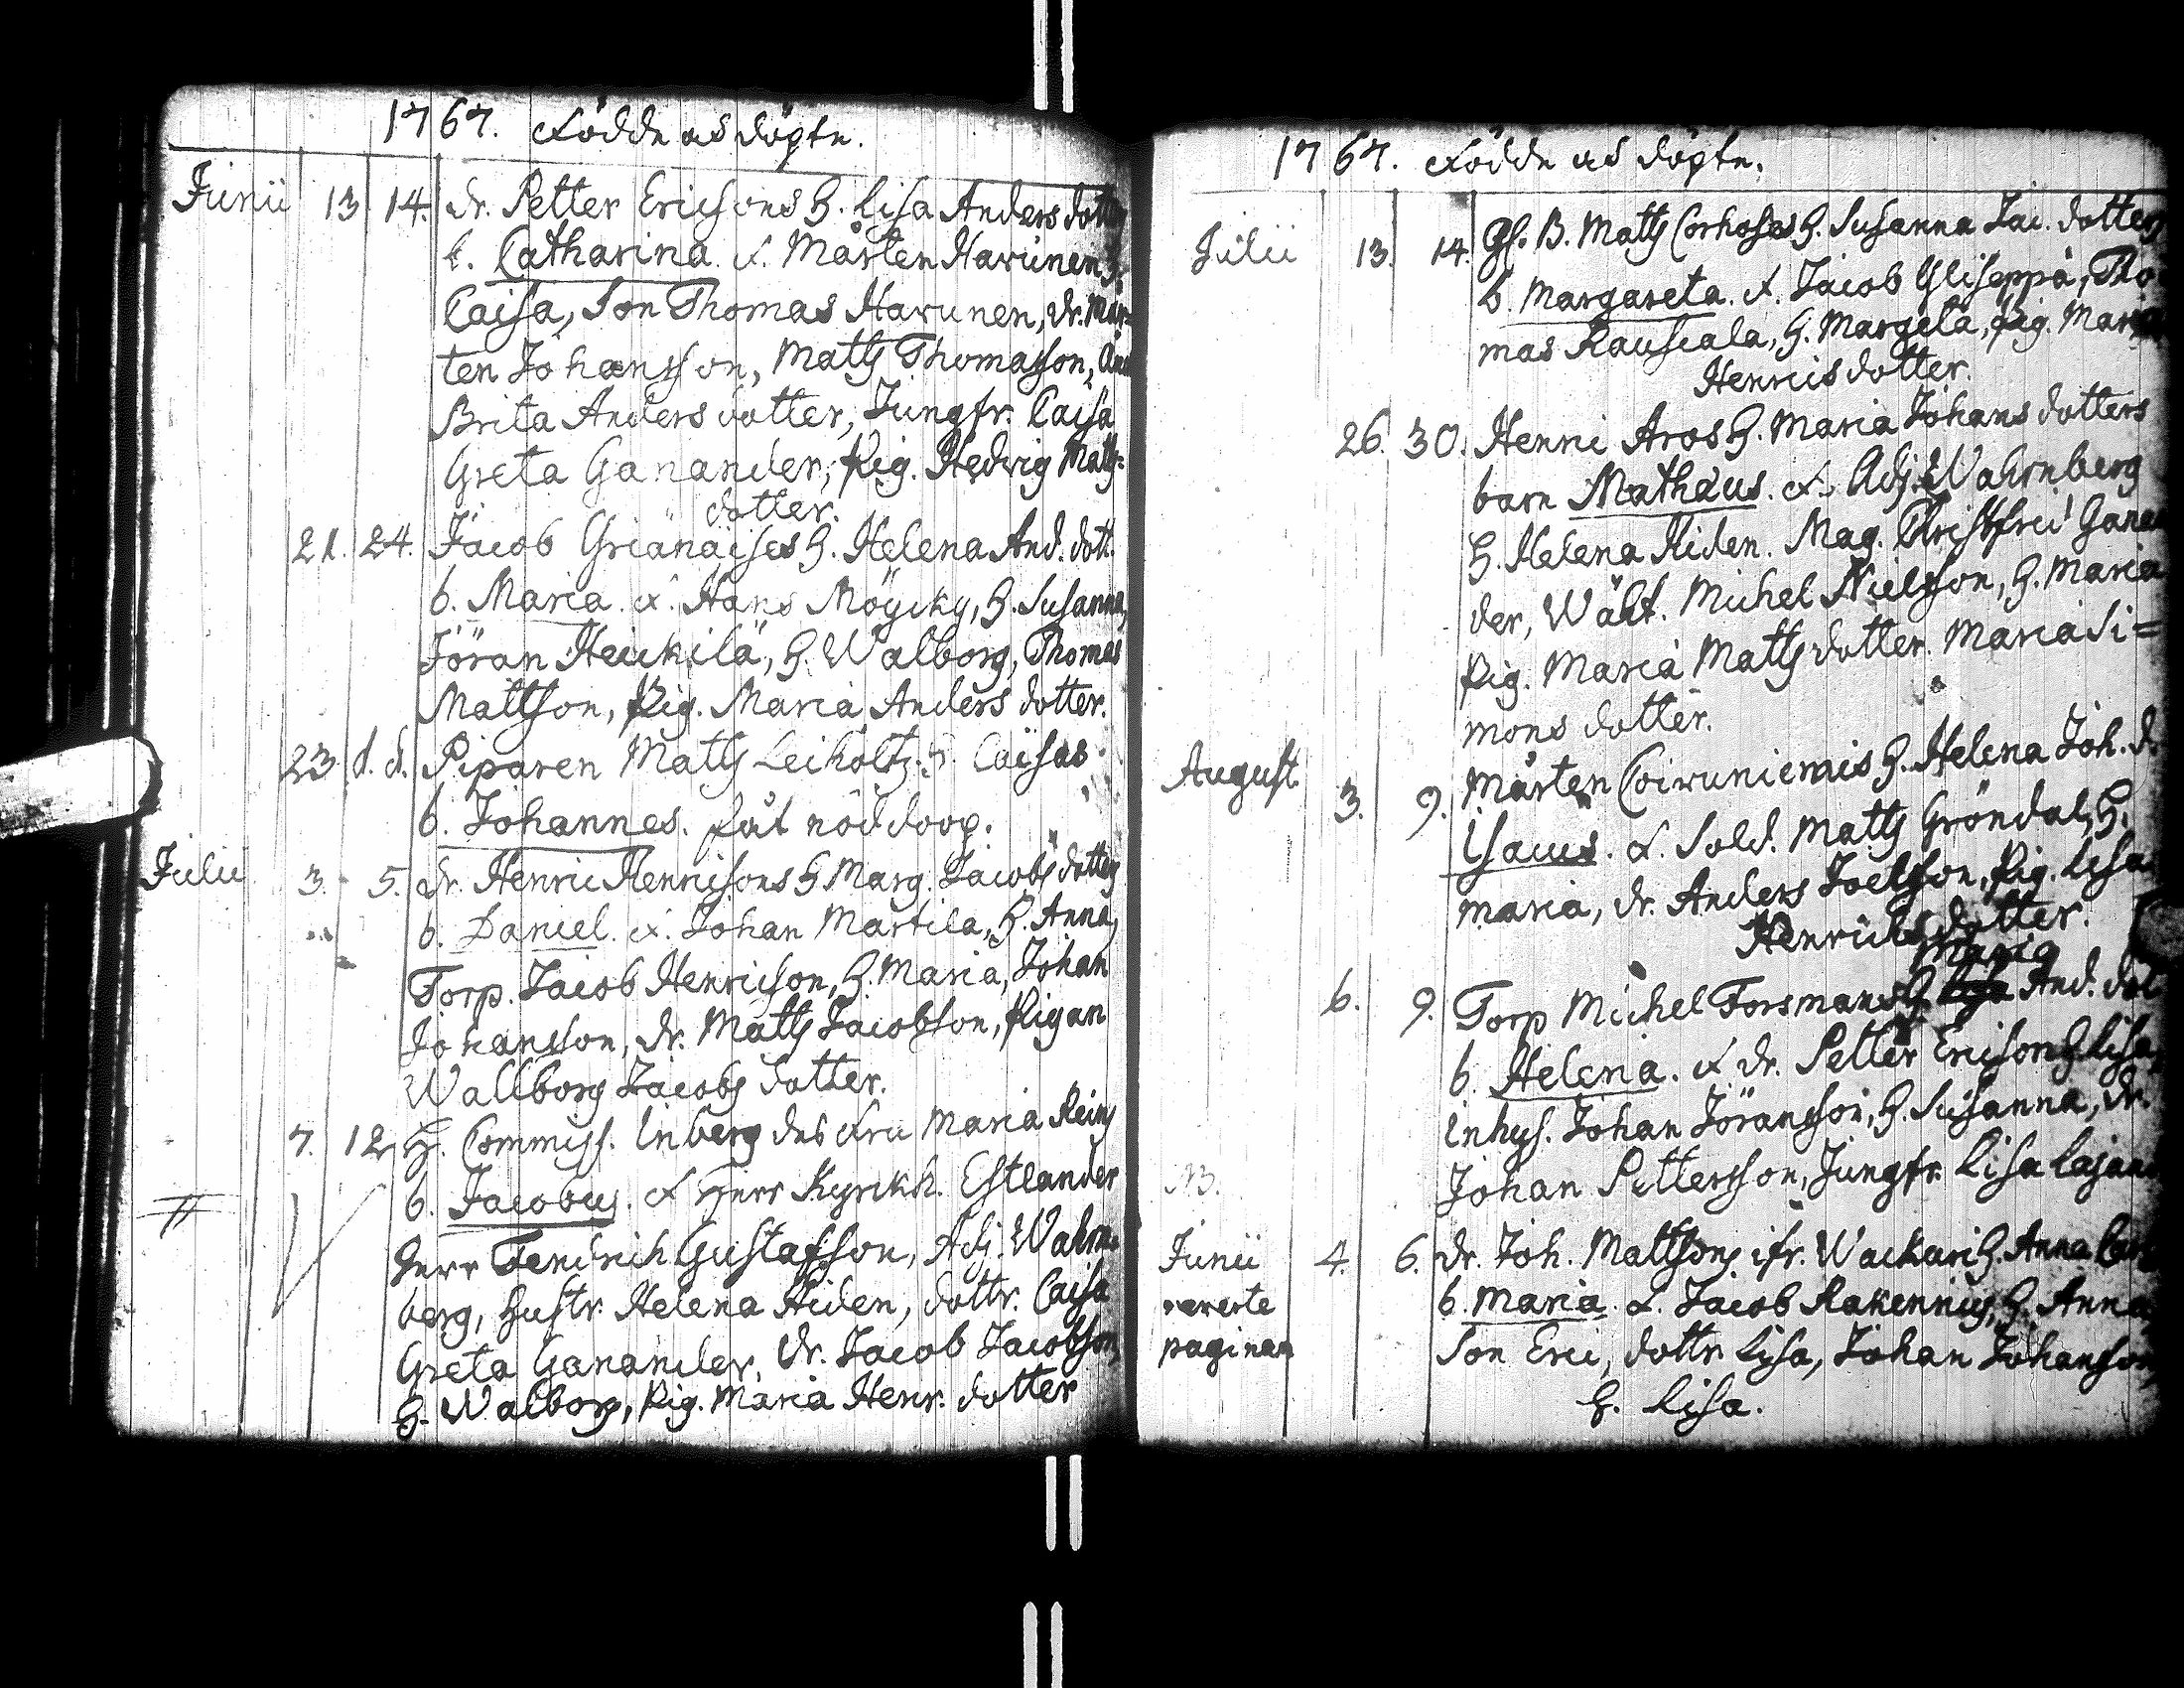 1767. Födde och döpte.
Junii 13 14. dr. Petter Ericsons H. Lisa Andersdotters
b. Catharina. f. Mårten Harunen, H.
Caisa, Son Thomas Harunen, dr. Mår-
ten Johansson, Matts Thomasson,
Brita Andersdotter, Jungfr. Caisa
Greta Gananders, Pig. Hedvig Matts-
dotter.
21. 24. Jacob Grianaises H. Helena And. dott.
b. Maria. f. Hans Möycky, H. Susanna,
Jöran Heickilä, H. Walborg, Thomas
Mattson, Pig. Maria Andersdotter.
23 d. d. Piparen Matts Leiholtz H. Caisas
b. Johannes. fåt nöddop.
Julii 3. 5. dr. Henric Henricsons H Marg. Jacobsdotters
b. Daniel. f. Johan Martila, H. Anna,
Torp. Jacob Henricson, H. Maria, Johan
Johansson, dr. Matts Jacobson, Pigan
Wallborg Jacobsdotter.
7. 12 H. Commiss. Inberg des fru Maria Reins
b. Jacobus. f Herr Kyrckh. Estlander
Herr Fendrich Gustafsson, Adj. Wahrn-
berg, hustr. Helena Hiden, dottr. Caisa
Greta Gananders, Dr. Jacob Jacobson,
H. Walborg, Pig. Maria Henr. dotter
1767. Födde och döpte.
Julii 13. 14. B. Matts Corhoses H. Susanna Jac. dotters
b. Margareta. f. Jacob Yliseppä, Tho-
mas Rauscala, H. Margeta, Pig. Maria
Henricsdotter.
26. 30. Henric Aros H. Maria Johansdotters
barn Mathæus. f. Adj. Wahrnberg
H. Helena Hiden. Mag. Christfrid Ganan-
der, Wäbt. Michel Nielsson, H. Maria
Pig. Maria Mattsdotter. Maria Si=
monsdotter.
August. 3. 9. Mårten Coiruniemis H. Helena Joh. d.
Isacus. f. Sold. Matts Gröndal, H.
Maria, dr. Anders Joelsson, Pig. Lisa
Henrichsdotter.
Maria
6. 9. Torp Michel Forsmans H. And. dot
b. Helena. f dr. Petter Ericson H Lisa,
Inhys. Johan Jöransson, H. Susanna, dr.
Johan Pettersson, Jungfr. Lisa Cajan
NB.
Junii 4. 6. dr. Joh. Mattsons ifr. Wackuri H. Anna
reverte b. Maria. f. Jacob Rakennus, H. Anna,
paginam Son Eric, dottr Lisa, Johan Johansson,
H. Lisa.